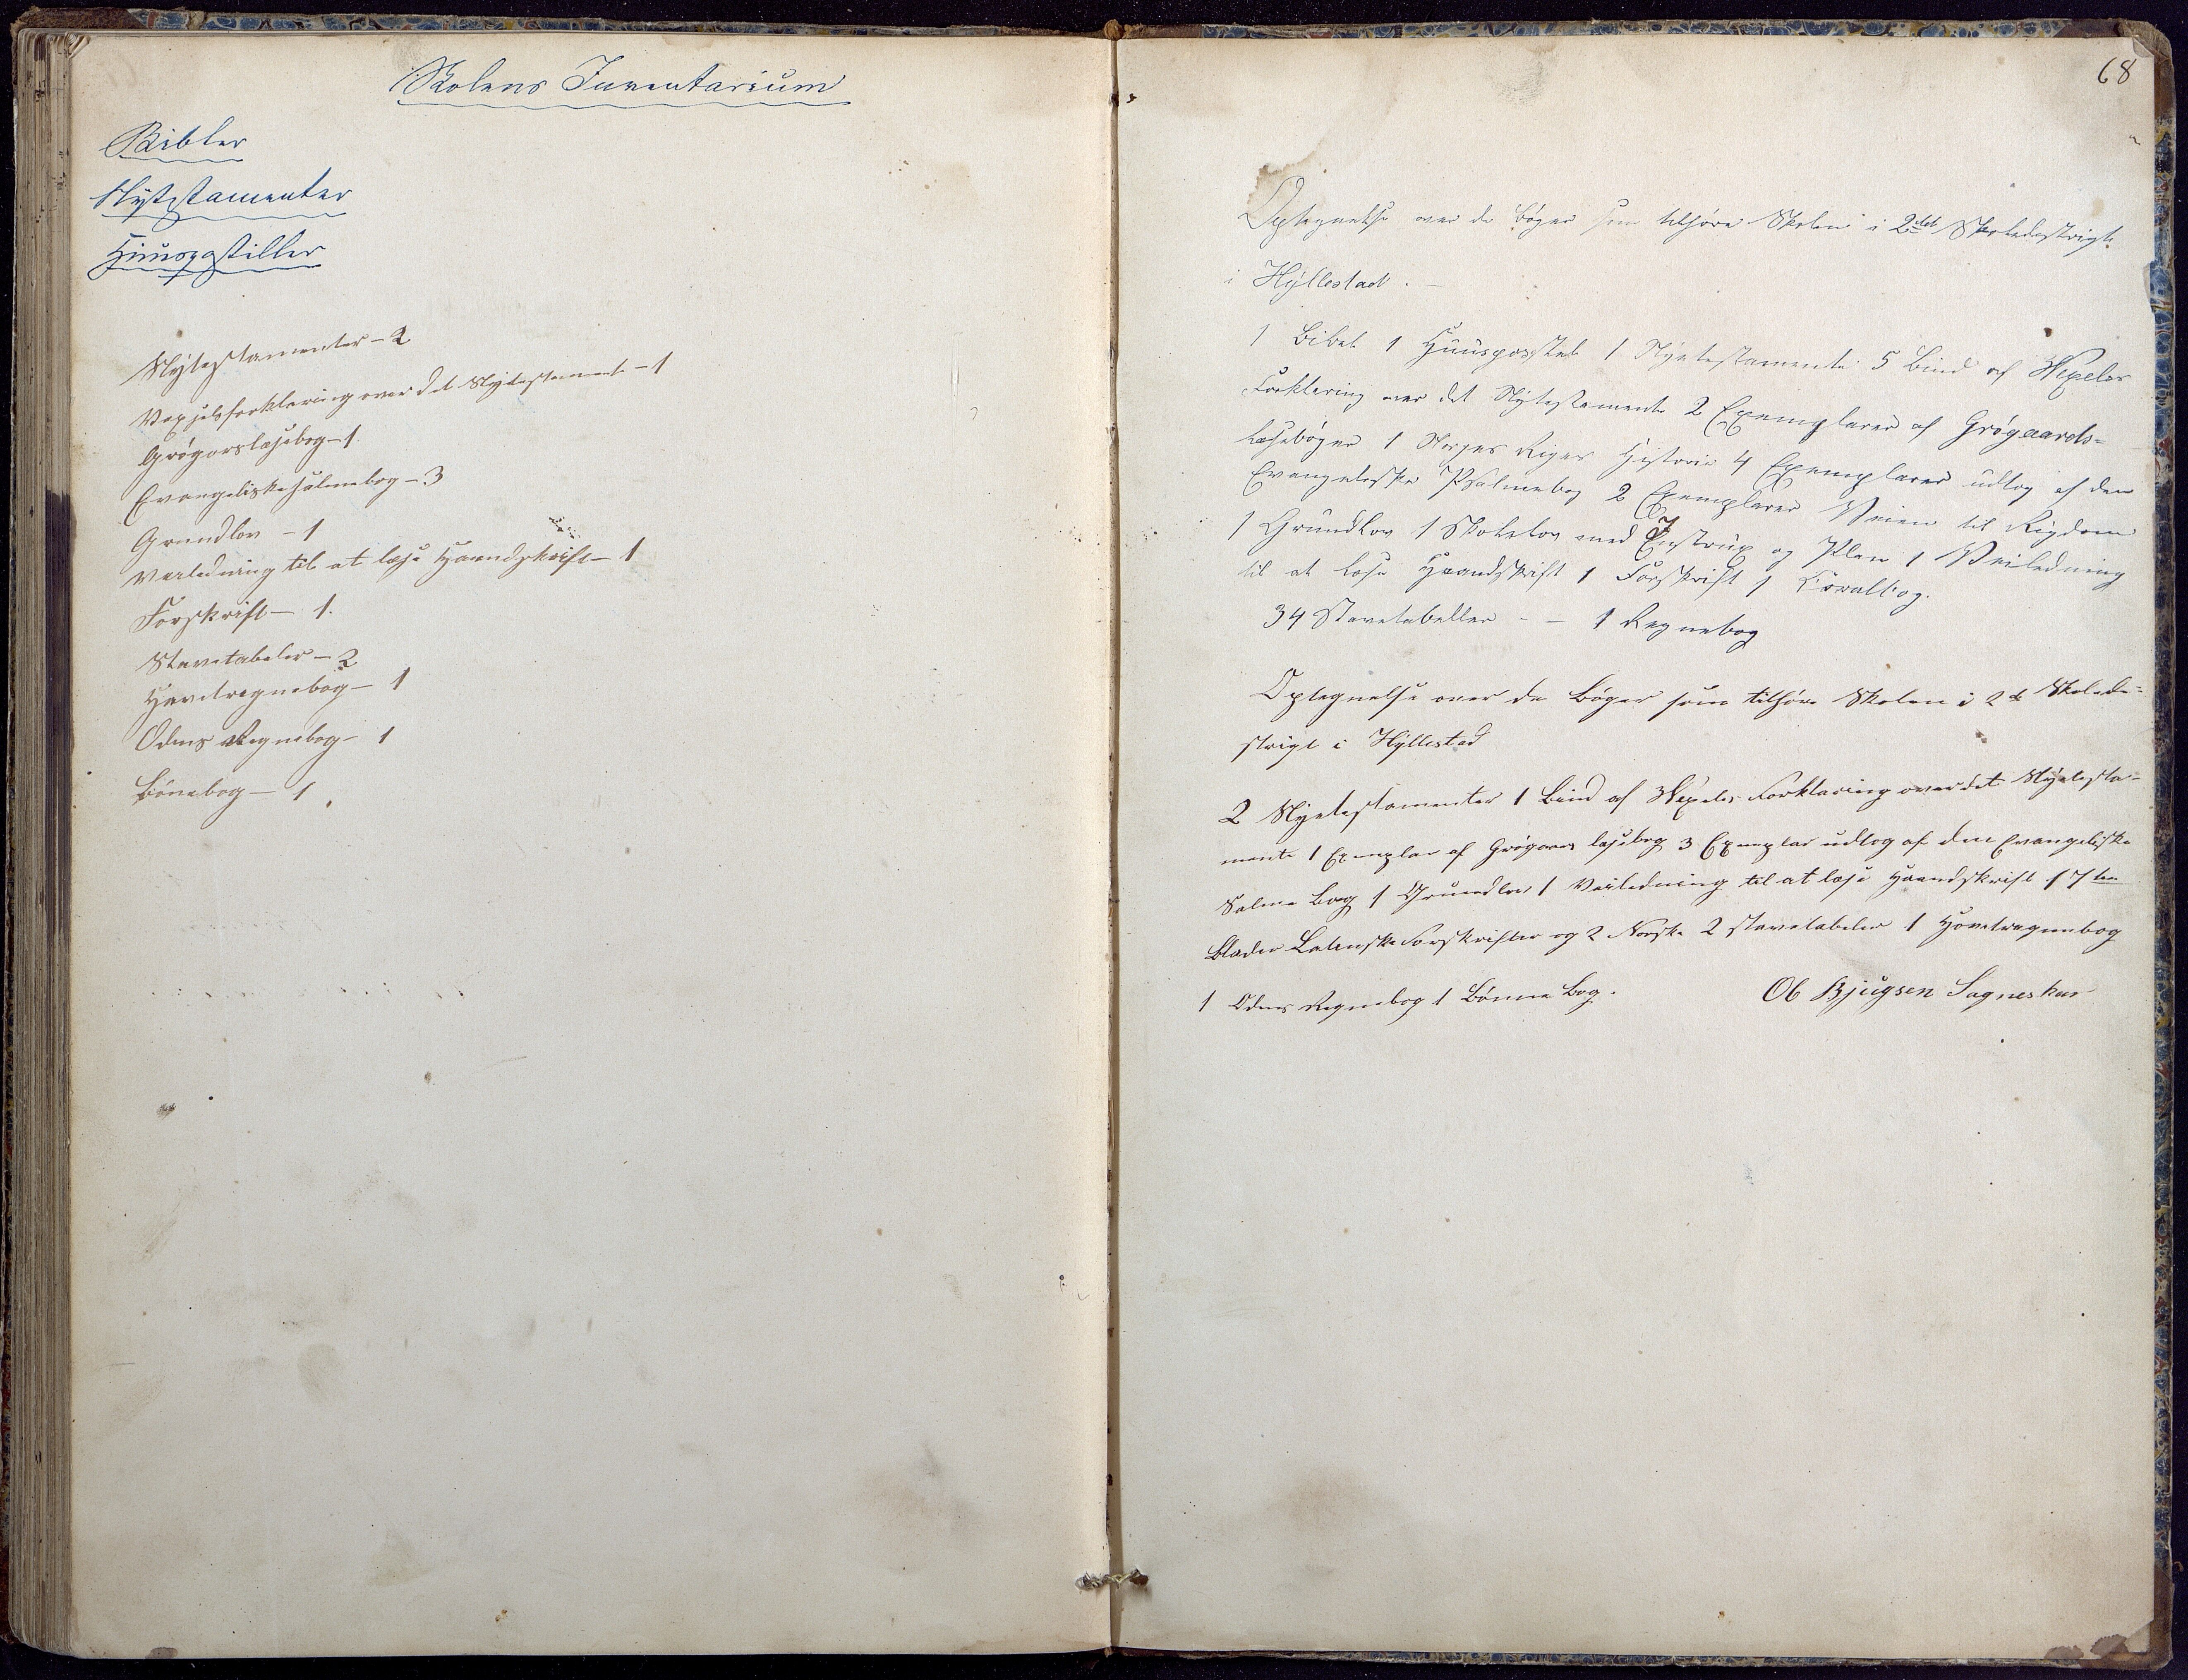 Skolens Inventarium
Bibler
Nytestamenter
Huuspostiller
Nytestamenter - 2
Vexselsforklaring over det Nytestamente - 1
Grögorslæsebog - 1.
Evangeliskesalmebog - 3
Grundlov - 1
Veiledning til at læse Haandskrift - 1
Forskrift - 1.
Stavetabeler - 2
Hovetregnebog - 1
Odens Regnebog - 1
Bönebog - 1.
68
Optegnelse over de Bøger som tilhøre Skolen i 2det Skoledestrigt
i Hÿllestad. -
1 Bibel 1 Huuspostil 1 Nyetestamente 5 Bind af Wexels
Forklaring over det Nytestamente 2 Exemplarer af Grøgaards-
Læsebøger 1 Norges Riges Historie 4 Exemplarer udtog af den
Evangeliske Psalmebog 2 Exemplarer Veien til Rigdom
1 Grundlov 1 Skolelov med Instrux og Plan 1 Veiledning
til at læse Haandskrift 1 Forskrift 1 Koralbog.
34 Stavetabeller - - 1 Regnebog
Optegnelse over de Bøger som tilhøre Skolen i 2det Skolede-
strigt i Hÿllestad
2 Nyetestamenter 1 Bind af Wexels Forklaring over det Nyetesta-
mente 1 Exemplar af Grögaars læsebog 3 Exemplar udtog af den Evangeliske
Salme Bog 1 Grundlov 1 Veiledning til at læse Haandskrift 17ten
Blader Latinske Forskrifter og 2 Norske 2 stavetabeler 1 Hovetregnebog
1 Odens Regnebog 1 Bönne Bog.
Ob Bjugsen Sagneskar